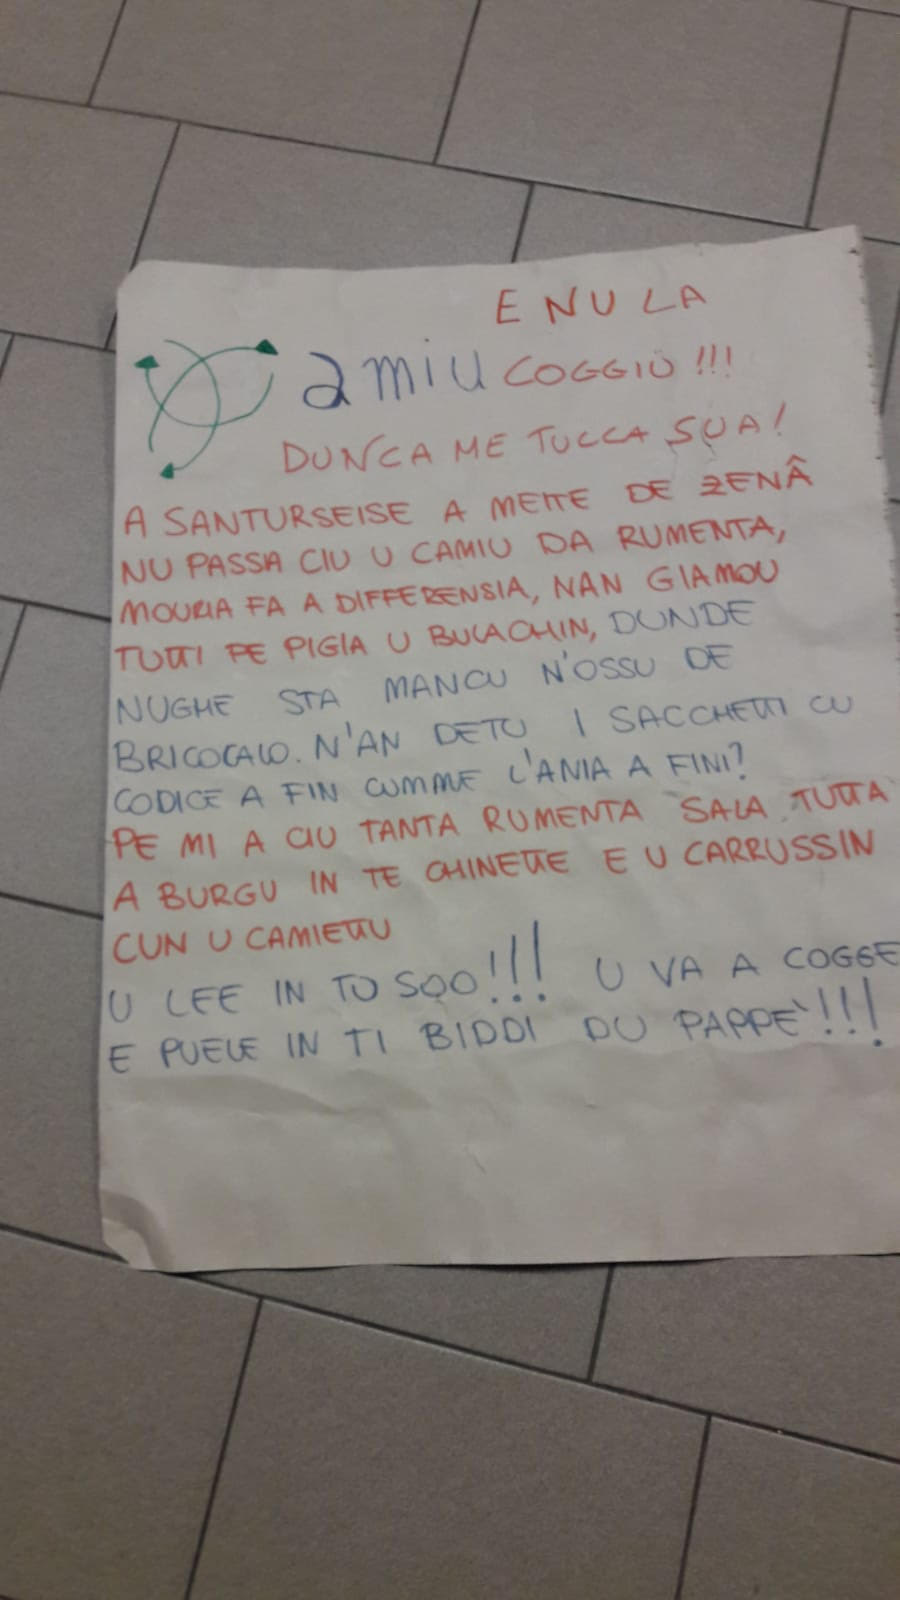 E NU LA
amiu COGGIÜ !!!
DUNCA ME TUCCA SUA!
A SANTURSEISE A METTE DE ZENÂ
NU PASSA CIU U CAMIU DA RUMENTA,
MOURIA FA A DIFFERENSIA, NAN GIAMOU
TUTTI PE PIGIA U BULACHIN, DUNDE
NUGHE STA MANCU N'OSSU DE
BRICOCALO. N'AN DETU I SACCHETTI CU
CODICE A FIN CUMME L'ANIA A FINI?
PE MI A CIU TANTA RUMENTA SALA TUTTA
A BURGU IN TE CHINETTE E U CARRUSSIN
CUN U CAMIETTU
U LEE IN TO SOO!!! U VA A COGGE
E PUELE IN TI BIDDI DU PAPPE'!!!